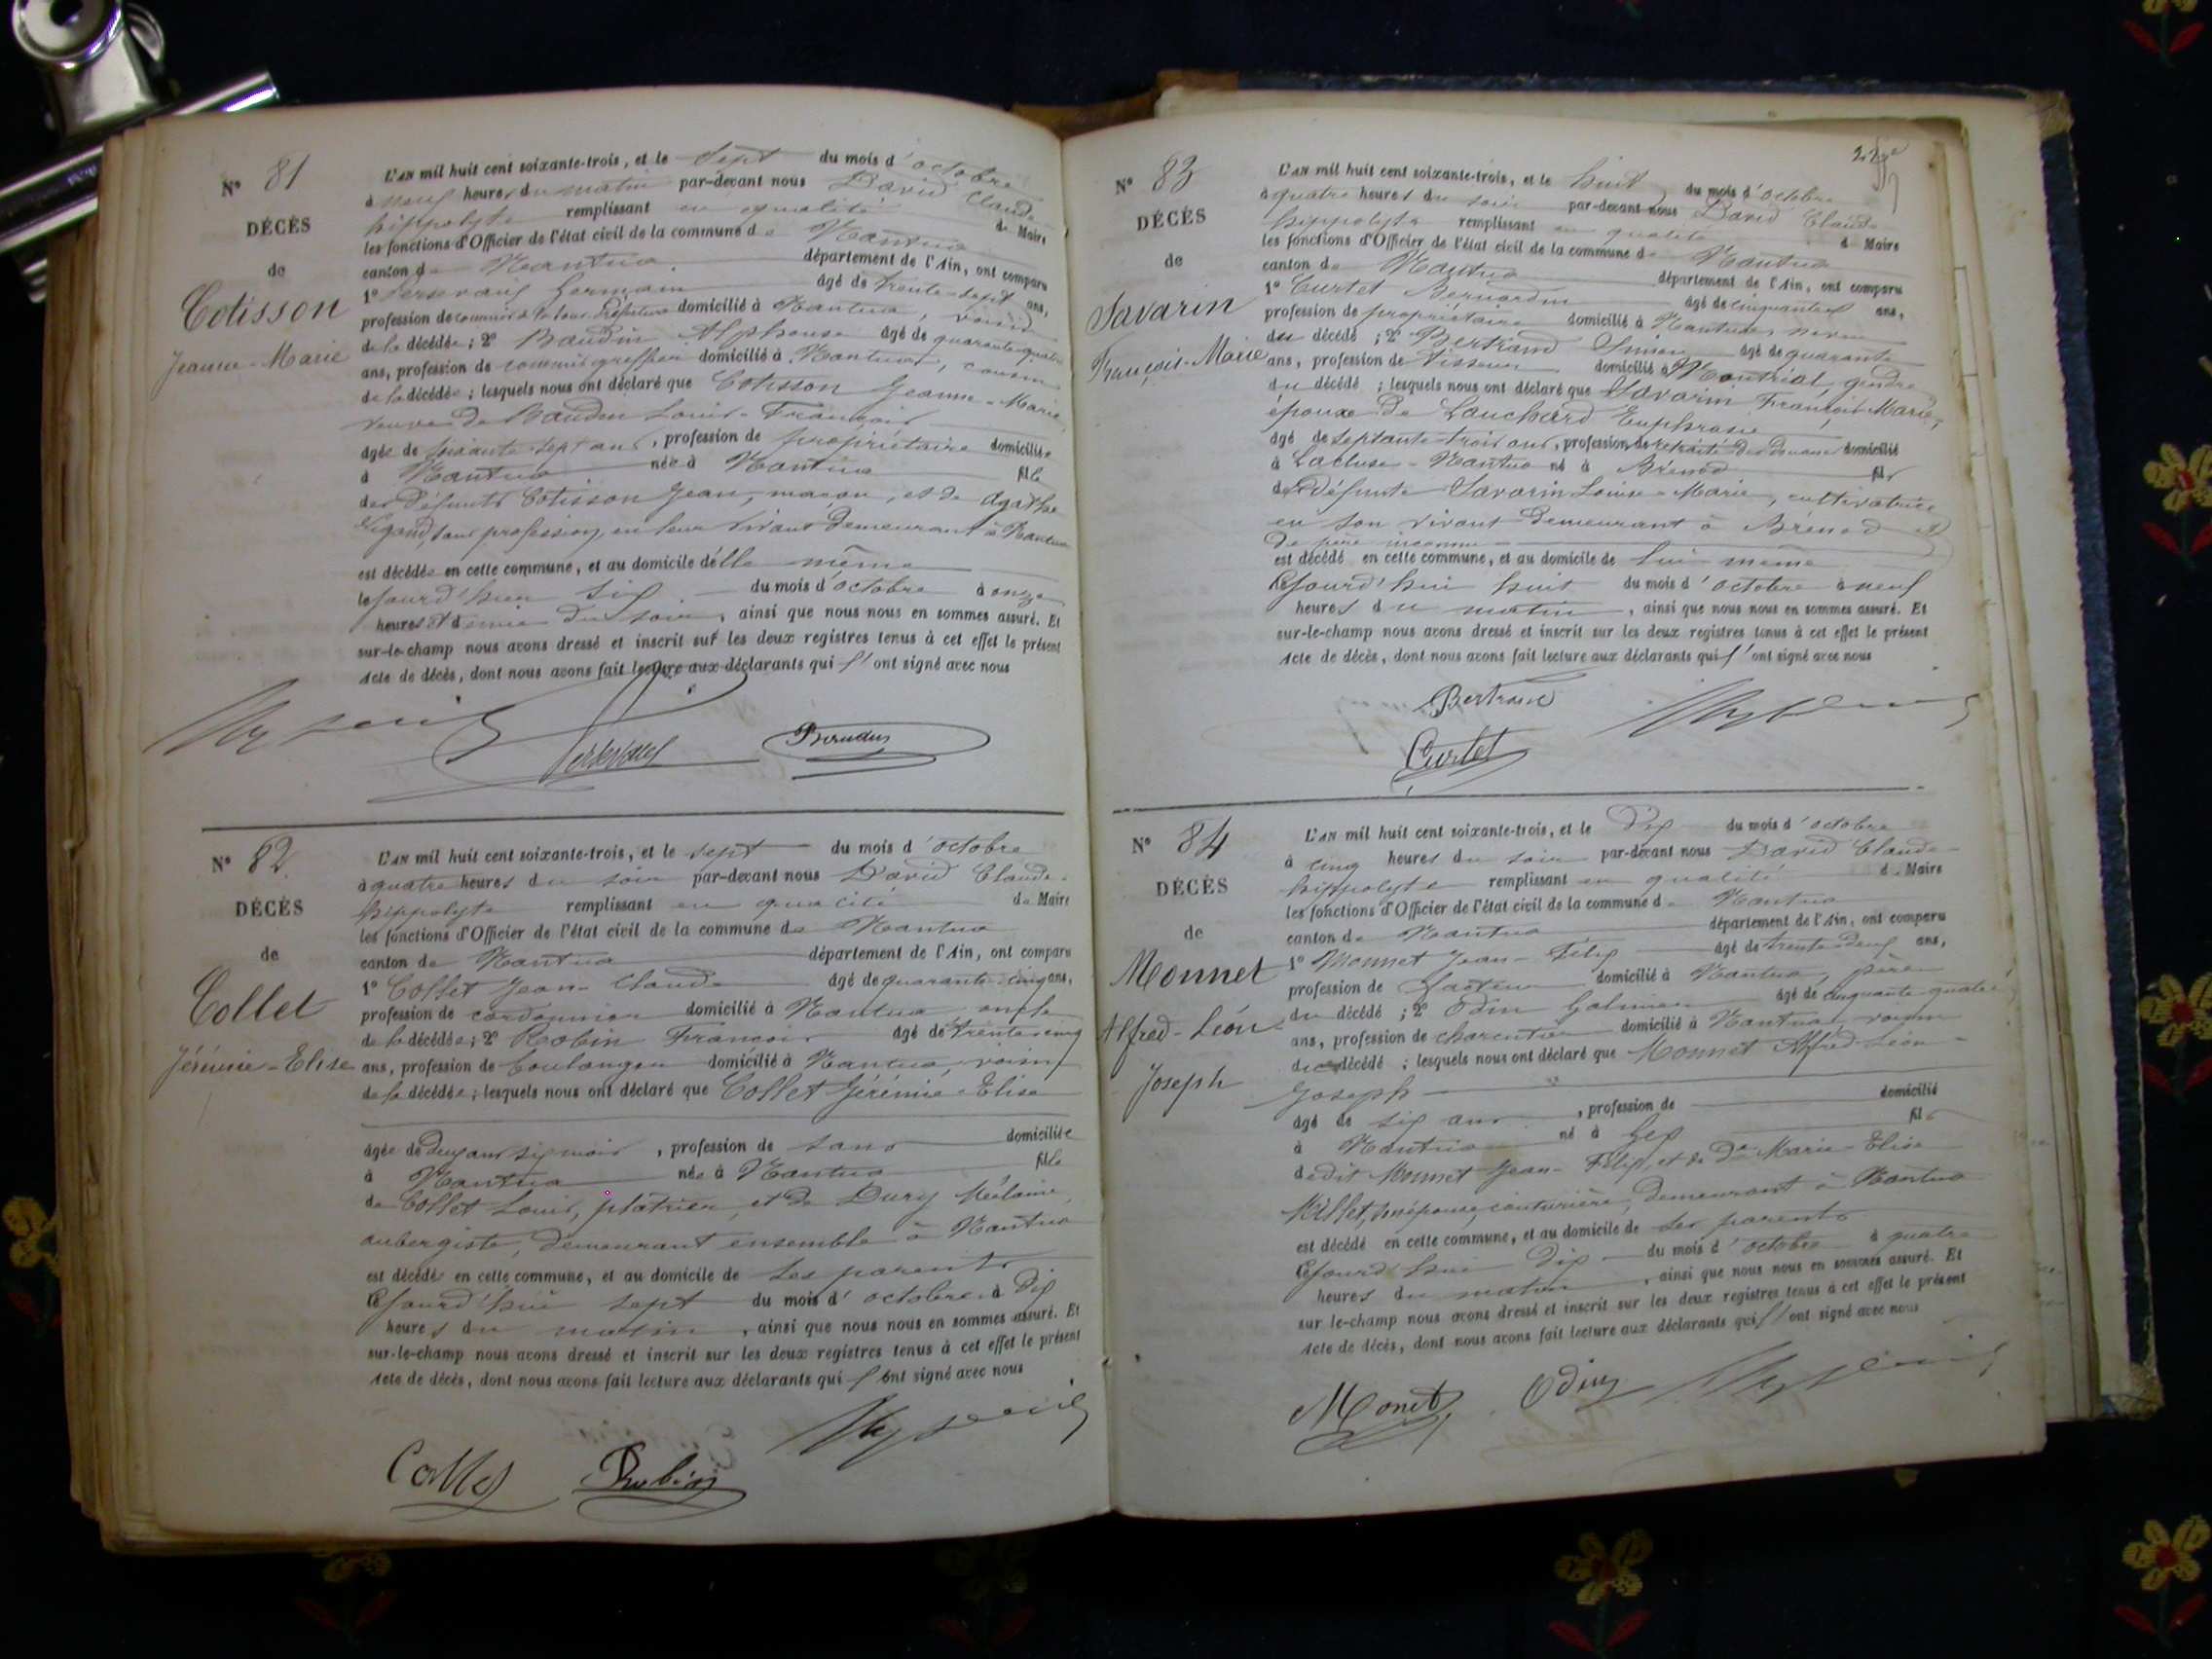 N° 81
DÉCÈS
de
Cotisson
Jeanne-Marie
L'AN mil huit cent soixante-trois, et le sept du mois d'octobre
à neuf heures du matin par-devant nous David Claude
hippolyte remplissant en qualité de Maire
les fonctions d'Officier de l'état civil de la commune de Nantua
canton de Nantua département de l'Ain, ont comparu
1° Germain âgé de trente-sept ans,
profession de commis domicilié à Nantua, voisin
de la décédée; 2° Baudin Alphonse âgé de quarante-quatre
ans, profession de commis greffier domicilié à Nantua, cousin
de la décédée; lesquels nous ont déclaré que Cotisson Jeanne-Marie,
veuve de Baudin Louis-François
âgée de soixante-sept ans, profession de propriétaire domiciliée
à Nantua née à Nantua fille
des défunts Cotisson Jean, maçon, et de Agathe
sans profession, en leur vivant demeurant à Nantua
est décédée en cette commune, et au domicile d'elle même
le jour d'hier six du mois d'octobre à onze
heures et demie du soir, ainsi que nous nous en sommes assuré. Et
sur-le-champ nous avons dressé et inscrit sur les deux registres tenus à cet effet le présent
Acte de décès, dont nous avons fait lecture aux déclarants qui l'ont signé avec nous
N° 82
DÉCÈS
de
Collet
Jérémie-Elise
L'AN mil huit cent soixante-trois, et le sept du mois d'octobre
à quatre heures du soir par-devant nous David Claude-
hippolyte remplissant en qualité de Maire
les fonctions d'Officier de l'état civil de la commune de Nantua
canton de Nantua département de l'Ain, ont comparu
1° Collet Jean-Claude âgé de quarante-cinq ans,
profession de cordonnier domicilié à Nantua, oncle
de la décédée; 2° Robin François âgé de trente-cinq
ans, profession de boulanger domicilié à Nantua, voisin
de la décédée; lesquels nous ont déclaré que Collet Jérémie-Elise
âgée de deux ans six mois, profession de sans domiciliée
à Nantua née à Nantua fille
de Collet Louis, plâtrier, et de Dury Mélanie,
aubergiste, demeurant ensemble à Nantua
est décédée en cette commune, et au domicile de ses parents
Cejourd'hui sept du mois d'octobre à dix
heures du matin, ainsi que nous nous en sommes assuré. Et
sur-le-champ nous avons dressé et inscrit sur les deux registres tenus à cet effet le présent
Acte de décès, dont nous avons fait lecture aux déclarants qui l'ont signé avec nous
Collet Robin
N° 83
DÉCÈS
de
Savarin
François-Marie
L'AN mil huit cent soixante-trois, et le huit du mois d'octobre
à quatre heures du soir par-devant nous David Claude
hippolyte remplissant en qualité de Maire
les fonctions d'Officier de l'état civil de la commune de Nantua
canton de Nantua département de l'Ain, ont comparu
1° Curtet Bernardin âgé de cinquante ans,
profession de propriétaire domicilié à Nantua, neveu
du décédé; 2° Bertrand Simon âgé de quarante
ans, profession de tisseur domicilié à Montréal, gendre
du décédé; lesquels nous ont déclaré que Savarin François-Marie,
époux de Louchard Euphrasie
âgé de septante-trois ans, profession de retraité des Douanes domicilié
à Lacluse-Nantua né à Brénod fils
de défunte Savarin Louise-Marie, cultivatrice
en son vivant demeurant à Brénod et
de père inconnu
est décédé en cette commune, et au domicile de lui même
Cejourd'hui huit du mois d'octobre à neuf
heures du matin, ainsi que nous nous en sommes assuré. Et
sur-le-champ nous avons dressé et inscrit sur les deux registres tenus à cet effet le présent
Acte de décès, dont nous avons fait lecture aux déclarants qui l'ont signé avec nous
Bertrand
Curtet
N° 84
DÉCÈS
de
Monnet
Alfred-Léon-
Joseph
L'AN mil huit cent soixante-trois, et le dix du mois d'octobre
à cinq heures du soir par-devant nous David Claude
hippolyte remplissant en qualité de Maire
les fonctions d'Officier de l'état civil de la commune de Nantua
canton de Nantua département de l'Ain, ont comparu
1° Monnet Jean-Félix âgé de trente-deux ans,
profession de facteur domicilié à Nantua, père
du décédé; 2° Odin âgé de cinquante-quatre
ans, profession de charcutier domicilié à Nantua, voisin
du décédé; lesquels nous ont déclaré que Monnet Alfred-Léon-
Joseph
âgé de six ans, profession de domicilié
à Nantua né à Gex fils
de dit Monnet Jean-Félix, et de De Marie-Elise
Millet, son épouse, couturière, demeurant à Nantua
est décédé en cette commune, et au domicile de ses parents
Cejourd'hui dix du mois d'octobre à quatre
heures du matin, ainsi que nous nous en sommes assuré. Et
sur-le-champ nous avons dressé et inscrit sur les deux registres tenus à cet effet le présent
Acte de décès, dont nous avons fait lecture aux déclarants qui l'ont signé avec nous
Monet Odin